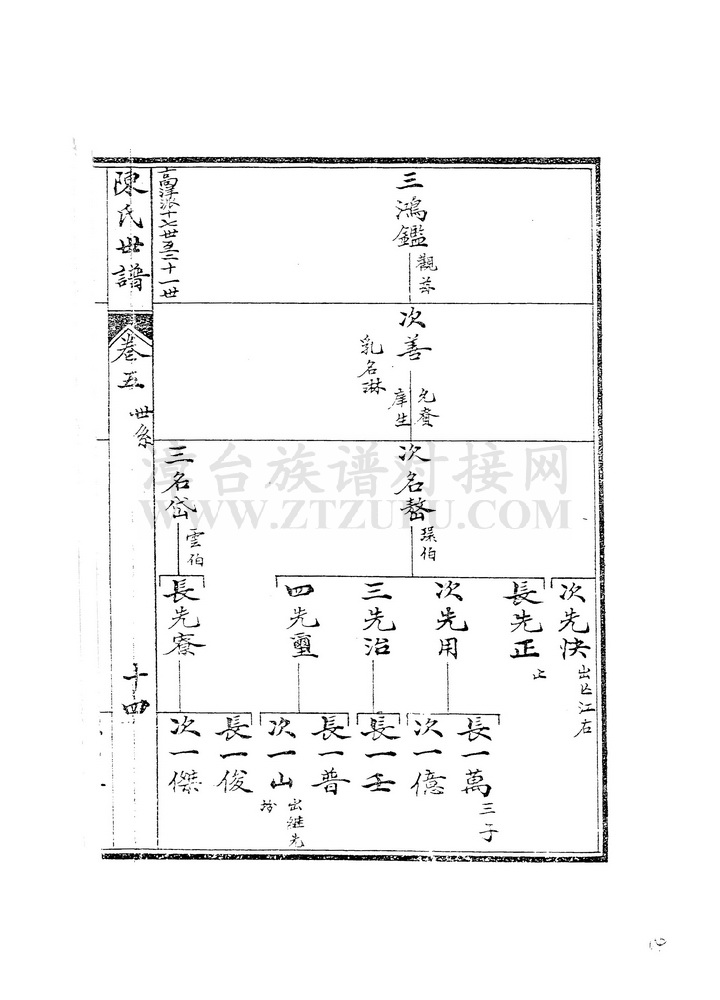 三鴻鑑
觀莽
次善
乳名琳
庠生
次名嶅
璞伯
次先快
出亾江右
長先正
止
次先用
三先治
四先璽
長一萬
三子
次一億
長一壬
長一普
次一山
出繼先
三名岱
雲伯
長先寮
長一俊
次一傑
高澤派十七世至二十一世
陳氏世譜
卷五
世系
十四
漳台族谱对接网
WWW.ZTZUPU.COM